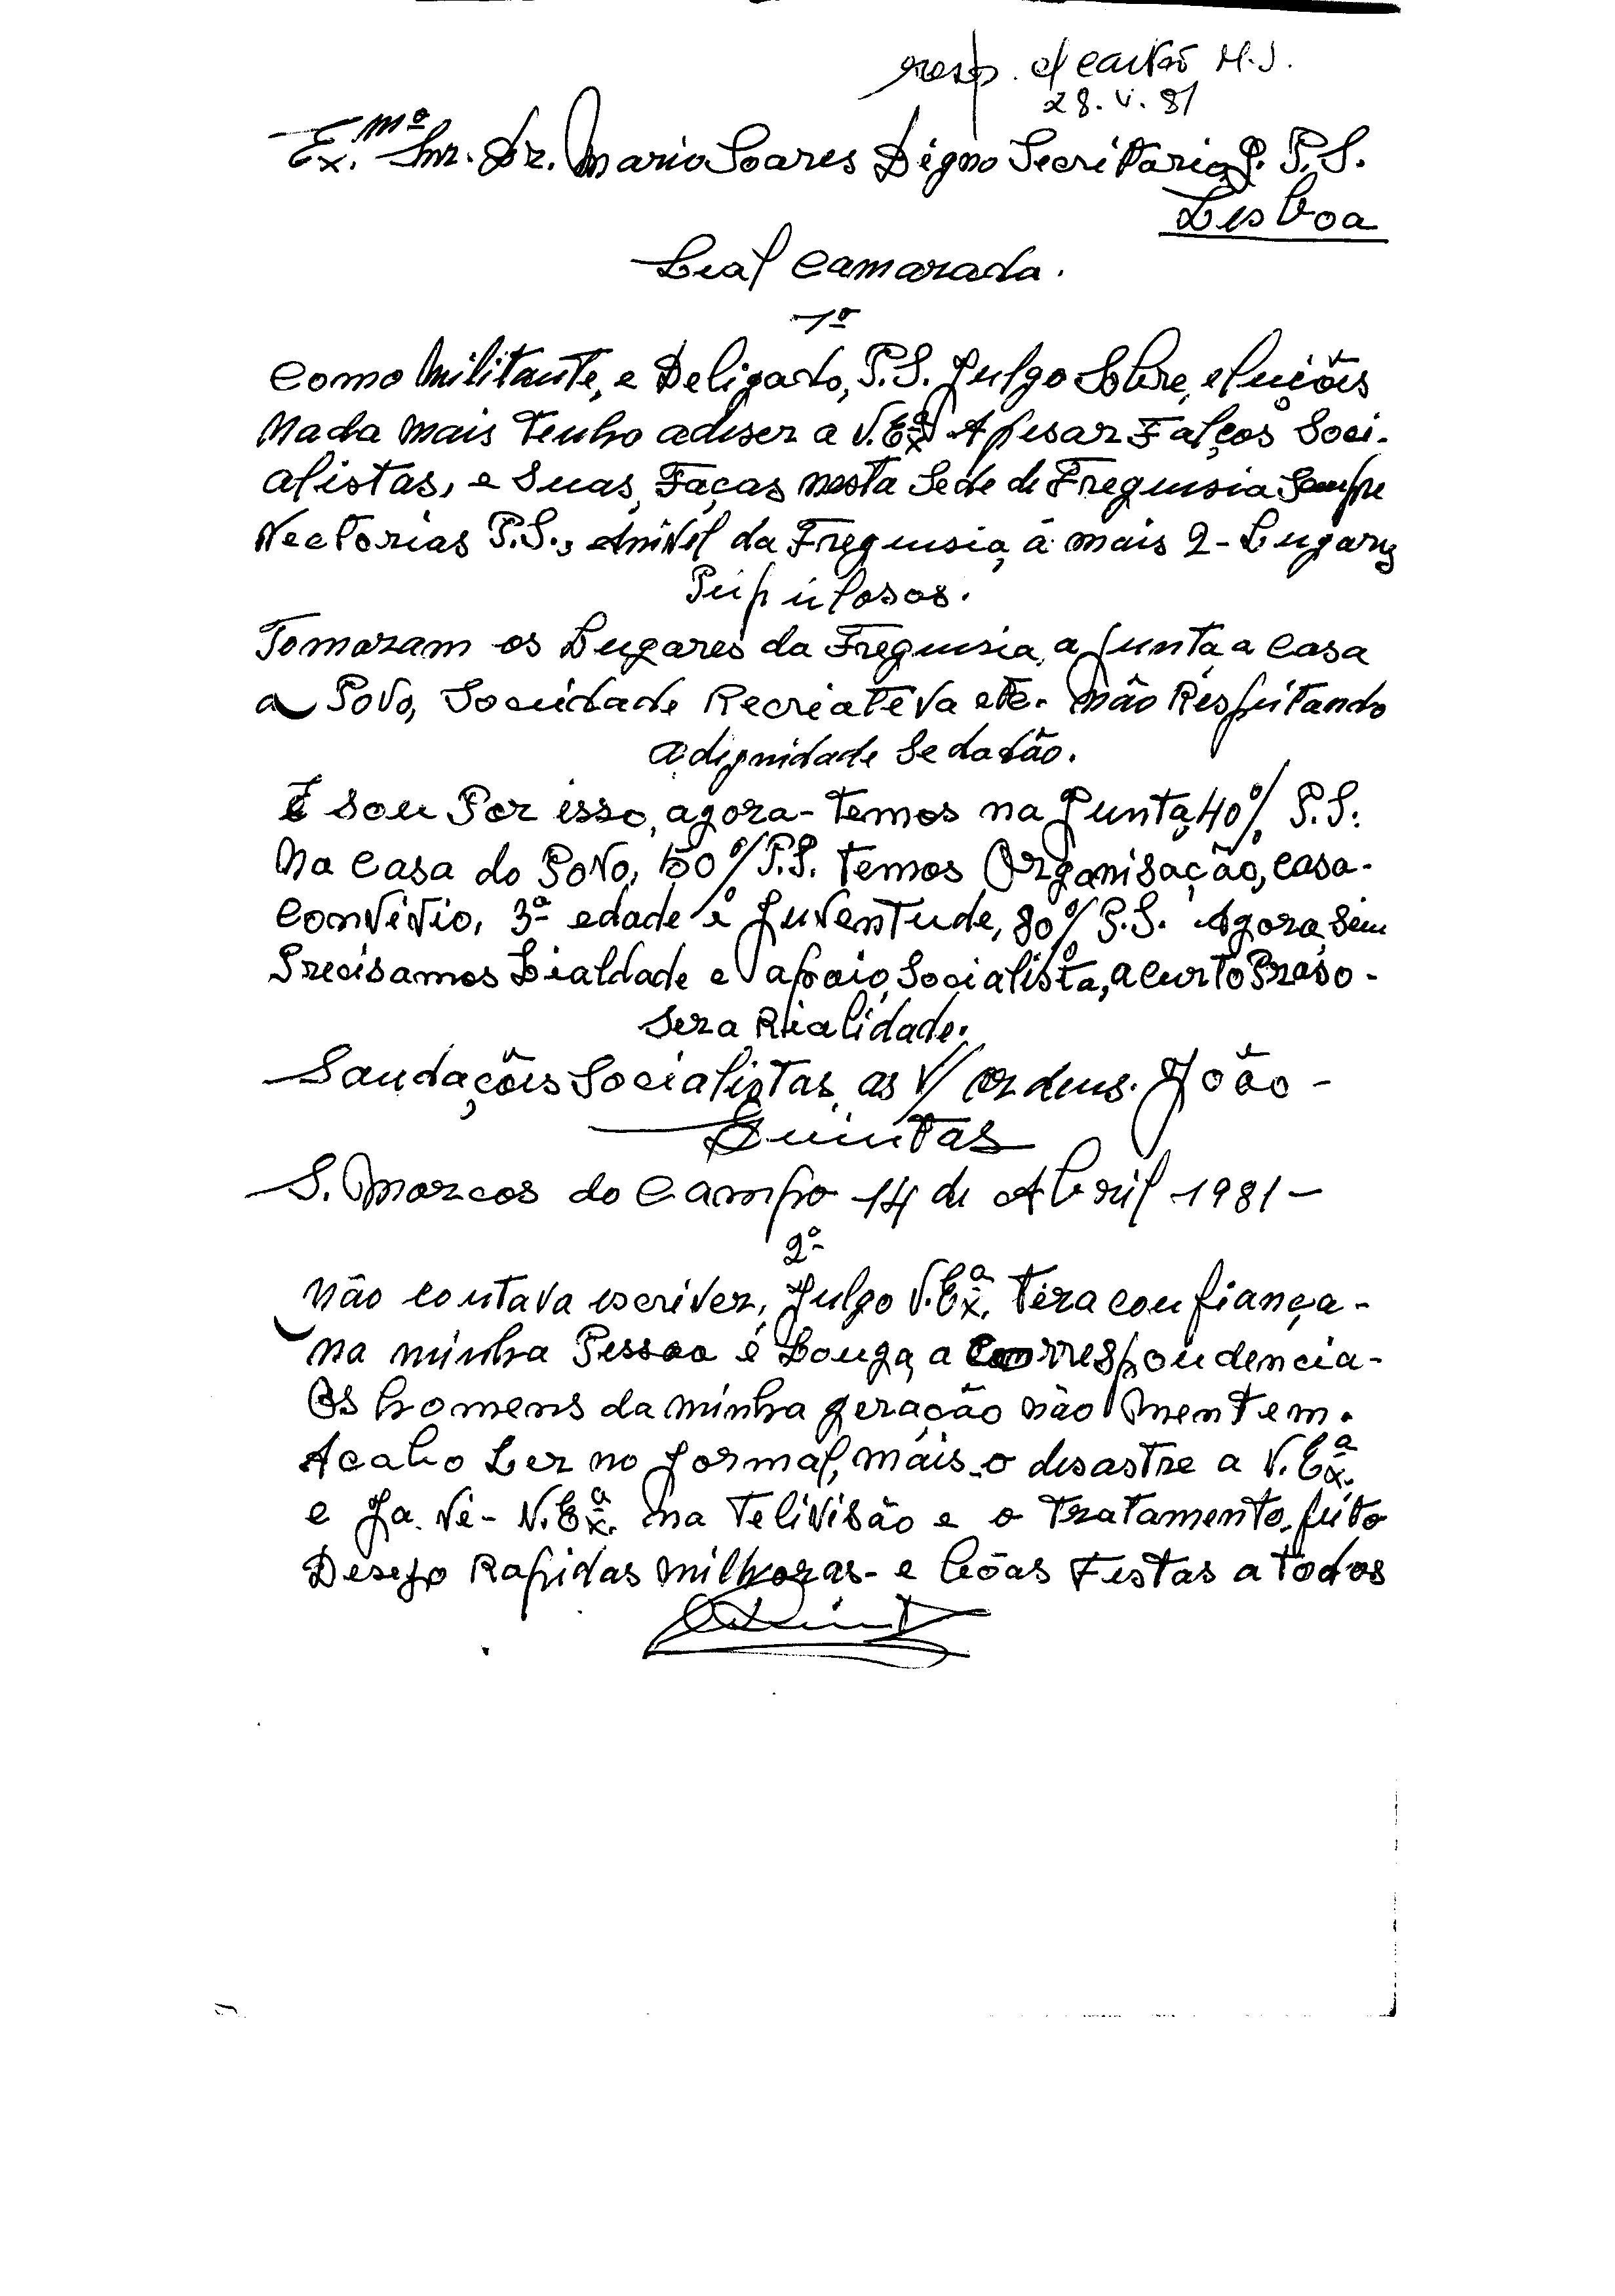 resp. c/ cartão M.S.
28.V.81
Ex.mº Snr. Dr. Mario Soares Digno Secritario G. P.S.
Lisboa
Leal Camarada.
1º
Como Militante, e Deligado, P.S. Julgo Sobre, eleições
Nada mais Tenho adiser a V.Exª Apesar Falços Soci-
alistas, e Suas, Faças nesta Sede de Freguisia Sempre
Vectorias P.S., ánivel da Freguisia, á mais 2-Lugares
Pupúlosos.
Tomaram os Lugares da Freguisia, a Junta, a Casa
a Povo, Sociedade Recreateva ete. Não Respeitando
a dignidade Sedadão.
É sou Por isso, agora-temos na Junta, 40% P.S.
Na Casa do Povo, 150% P.S. temos Organisação, Casa-
Convívio, 3ª edade e Juventude, 80% P.S. Agora, Sim
Precisamos Lialdade e apoio, Socialista, a curto Praso-
Sera Rialidade.
Saudações Socialistas, as V/ Ordens. João-
Quintas
S. Marcos do Campo 14 de Abril 1981-
2º
Não contava escriver, Julgo V.Exª. Tera confiança-
na minha Pessoa é Longa, a Correspondencia-
Os homens da minha geração não mentem.
Acabo Ler no Jornal, mais o disastre a V.Exª.
e Ja. Vi- V.Exª. na Telivisão e o Tratamento, feito
Desejo Rapidas milhoras- e bôas Festas a todos